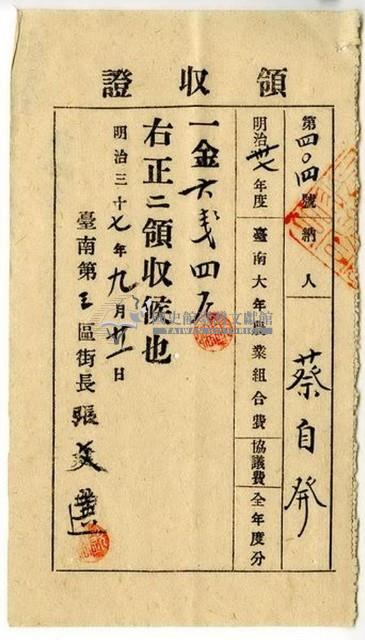 領收證
第四〇四號納人 蔡自發
明治卅七年度 臺南大年農業組合費 協議費 全年度分
一金六戔四厘
右正ニ領收候也
明治三十七年九月廿一日
臺南第三區街長 張
國史館臺灣文獻館
TAIWAN HISTORICA